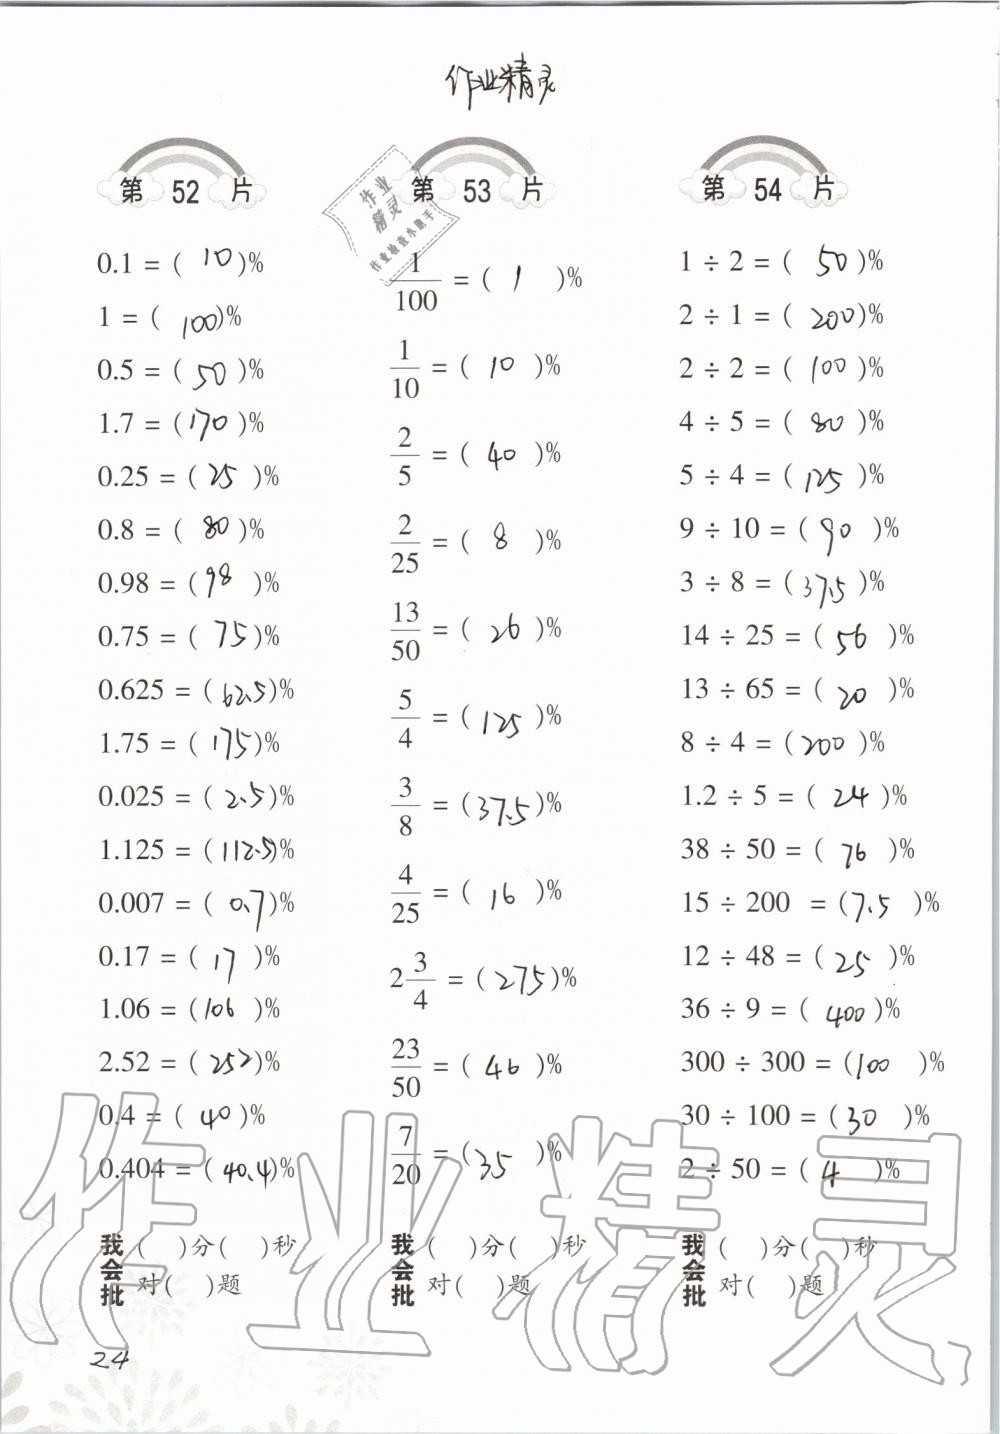 作业精灵
第 52 片
0.1 = ( 10 )%
1 = ( 100 )%
0.5 = ( 50 )%
1.7 = ( 170 )%
0.25 = ( 25 )%
0.8 = ( 80 )%
0.98 = ( 98 )%
0.75 = ( 75 )%
0.625 = ( 62.5 )%
1.75 = ( 175 )%
0.025 = ( 2.5 )%
1.125 = ( 112.5 )%
0.007 = ( 0.7 )%
0.17 = ( 17 )%
1.06 = ( 106 )%
2.52 = ( 252 )%
0.4 = ( 40 )%
0.404 = ( 40.4 )%
我会批 ( )分( )秒
对( )题
第 53 片
作业
精灵
作业检查小助手
1/100 = ( 1 )%
1/10 = ( 10 )%
2/5 = ( 40 )%
2/25 = ( 8 )%
13/50 = ( 26 )%
5/4 = ( 125 )%
3/8 = ( 37.5 )%
4/25 = ( 16 )%
2 3/4 = ( 275 )%
23/50 = ( 46 )%
7/20 = ( 35 )%
我会批 ( )分( )秒
对( )题
第 54 片
1 ÷ 2 = ( 50 )%
2 ÷ 1 = ( 200 )%
2 ÷ 2 = ( 100 )%
4 ÷ 5 = ( 80 )%
5 ÷ 4 = ( 125 )%
9 ÷ 10 = ( 90 )%
3 ÷ 8 = ( 37.5 )%
14 ÷ 25 = ( 56 )%
13 ÷ 65 = ( 20 )%
8 ÷ 4 = ( 200 )%
1.2 ÷ 5 = ( 24 )%
38 ÷ 50 = ( 76 )%
15 ÷ 200 = ( 7.5 )%
12 ÷ 48 = ( 25 )%
36 ÷ 9 = ( 400 )%
300 ÷ 300 = ( 100 )%
30 ÷ 100 = ( 30 )%
2 ÷ 50 = ( 4 )%
我会批 ( )分( )秒
对( )题
作业精灵
24